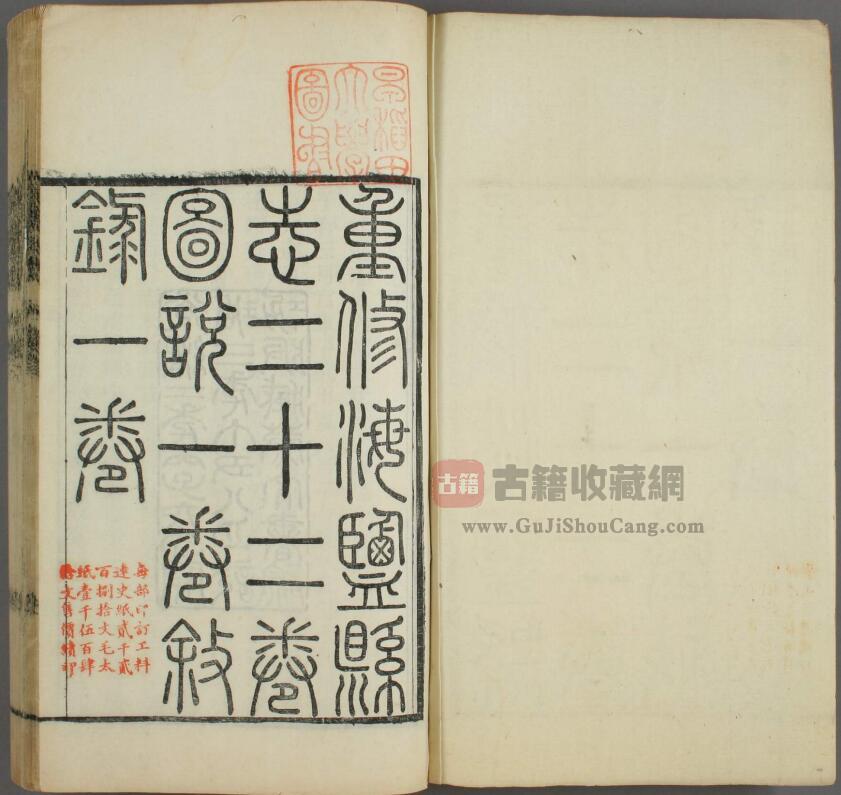 早稻田
大學
圖書
重修海鹽縣
志二十二卷
圖說一卷敘
錄一卷
每部印訂工料
連史紙貳千貳
百捌拾文毛太
紙壹千伍百肆
文售價續印
古籍
古籍收藏網
www.GuJiShouCang.com